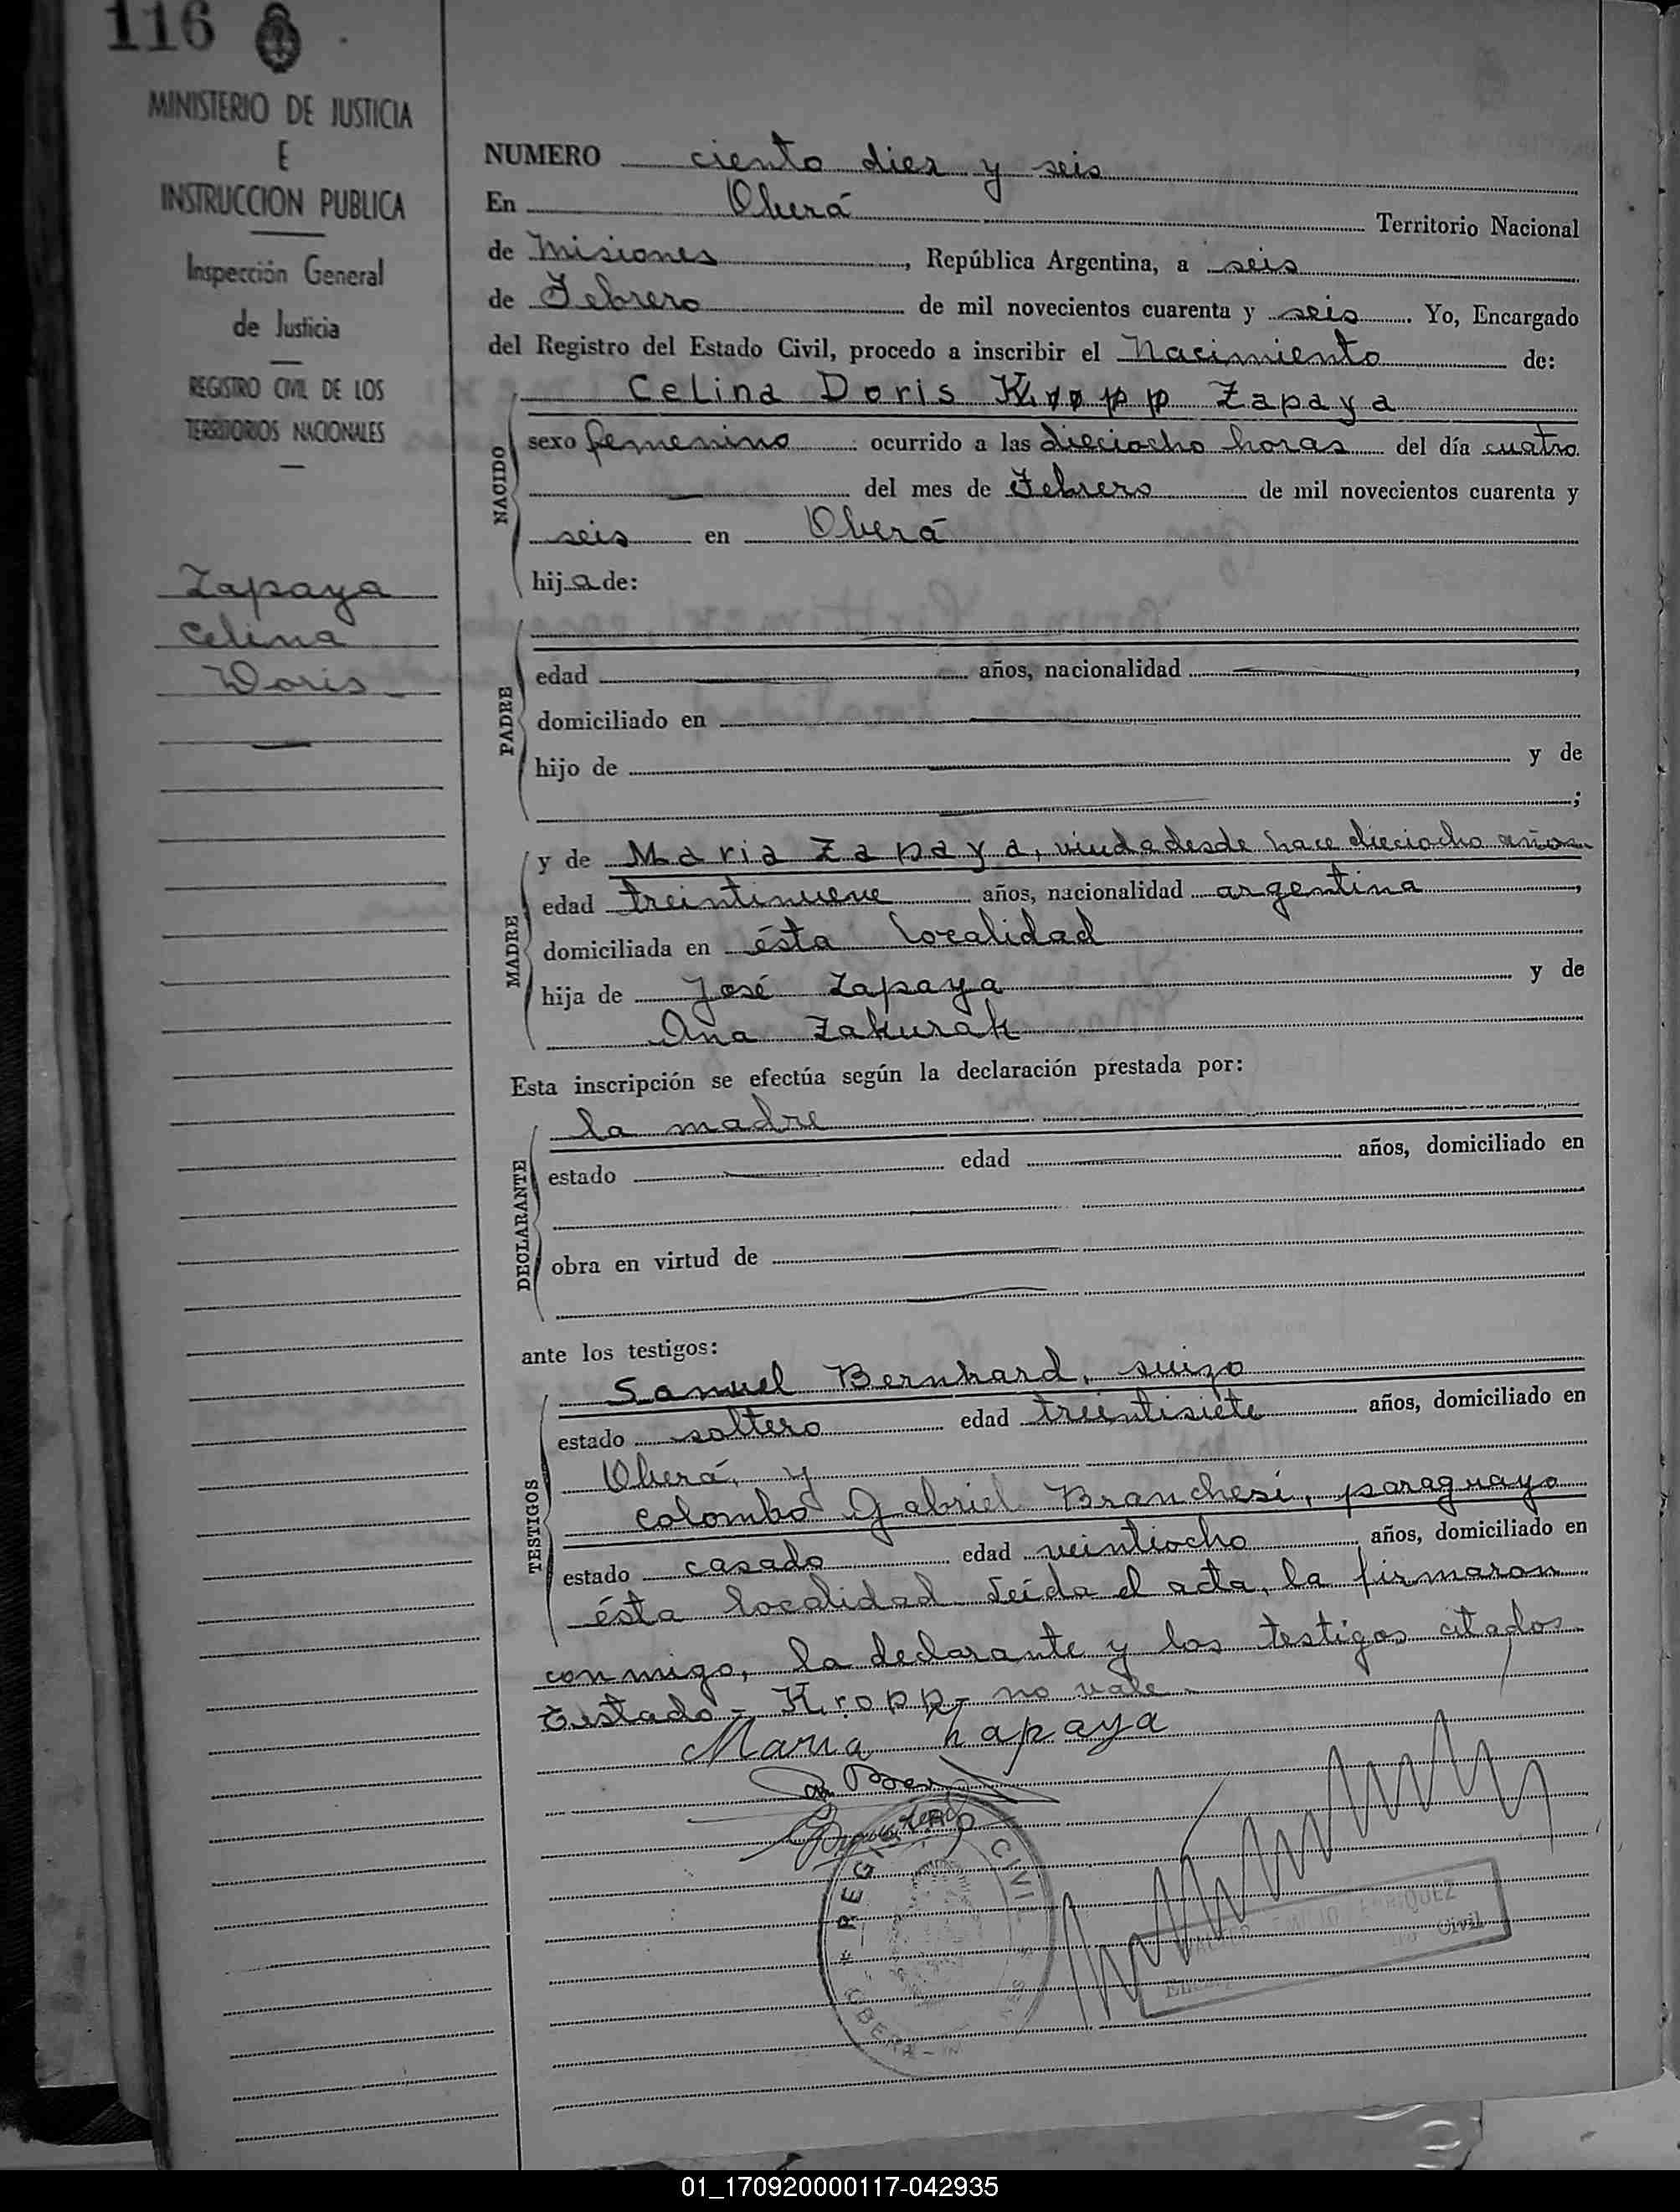 116
MINISTERIO DE JUSTICIA
E
INSTRUCCION PUBLICA
Inspección General
de Justicia
REGISTRO CIVIL DE LOS
TERRITORIOS NACIONALES
Zapaya
Celina
Doris
NUMERO ciento diez y seis
En Oberá Territorio Nacional
de Misiones, República Argentina, a seis
de Febrero de mil novecientos cuarenta y seis. Yo, Encargado
del Registro del Estado Civil, procedo a inscribir el Nacimiento de:
NACIDO
Celina Doris Kropp Zapaya
sexo femenino ocurrido a las dieciocho horas del día cuatro
del mes de Febrero de mil novecientos cuarenta y
seis en Oberá
hija de:
PADRE
edad años, nacionalidad ,
domiciliado en
hijo de y de
;
MADRE
y de Maria Zapaya, viuda desde hace dieciocho años
edad treintinueve años, nacionalidad argentina,
domiciliada en ésta localidad
hija de José Zapaya y de
Ana Zakurak
Esta inscripción se efectúa según la declaración prestada por:
DECLARANTE
la madre
estado edad años, domiciliado en
obra en virtud de
ante los testigos:
TESTIGOS
Samuel Bernhard, suizo
estado soltero edad treintisiete años, domiciliado en
Oberá, y
Colombo Gabriel Branchesi, paraguayo
estado casado edad veintiocho años, domiciliado en
ésta localidad Leída el acta, la firmaron
conmigo, la declarante y los testigos citados
Testado - Kropp - no vale
Maria Zapaya
REGISTRO CIVIL
OBERA
Civil
01_170920000117-042935